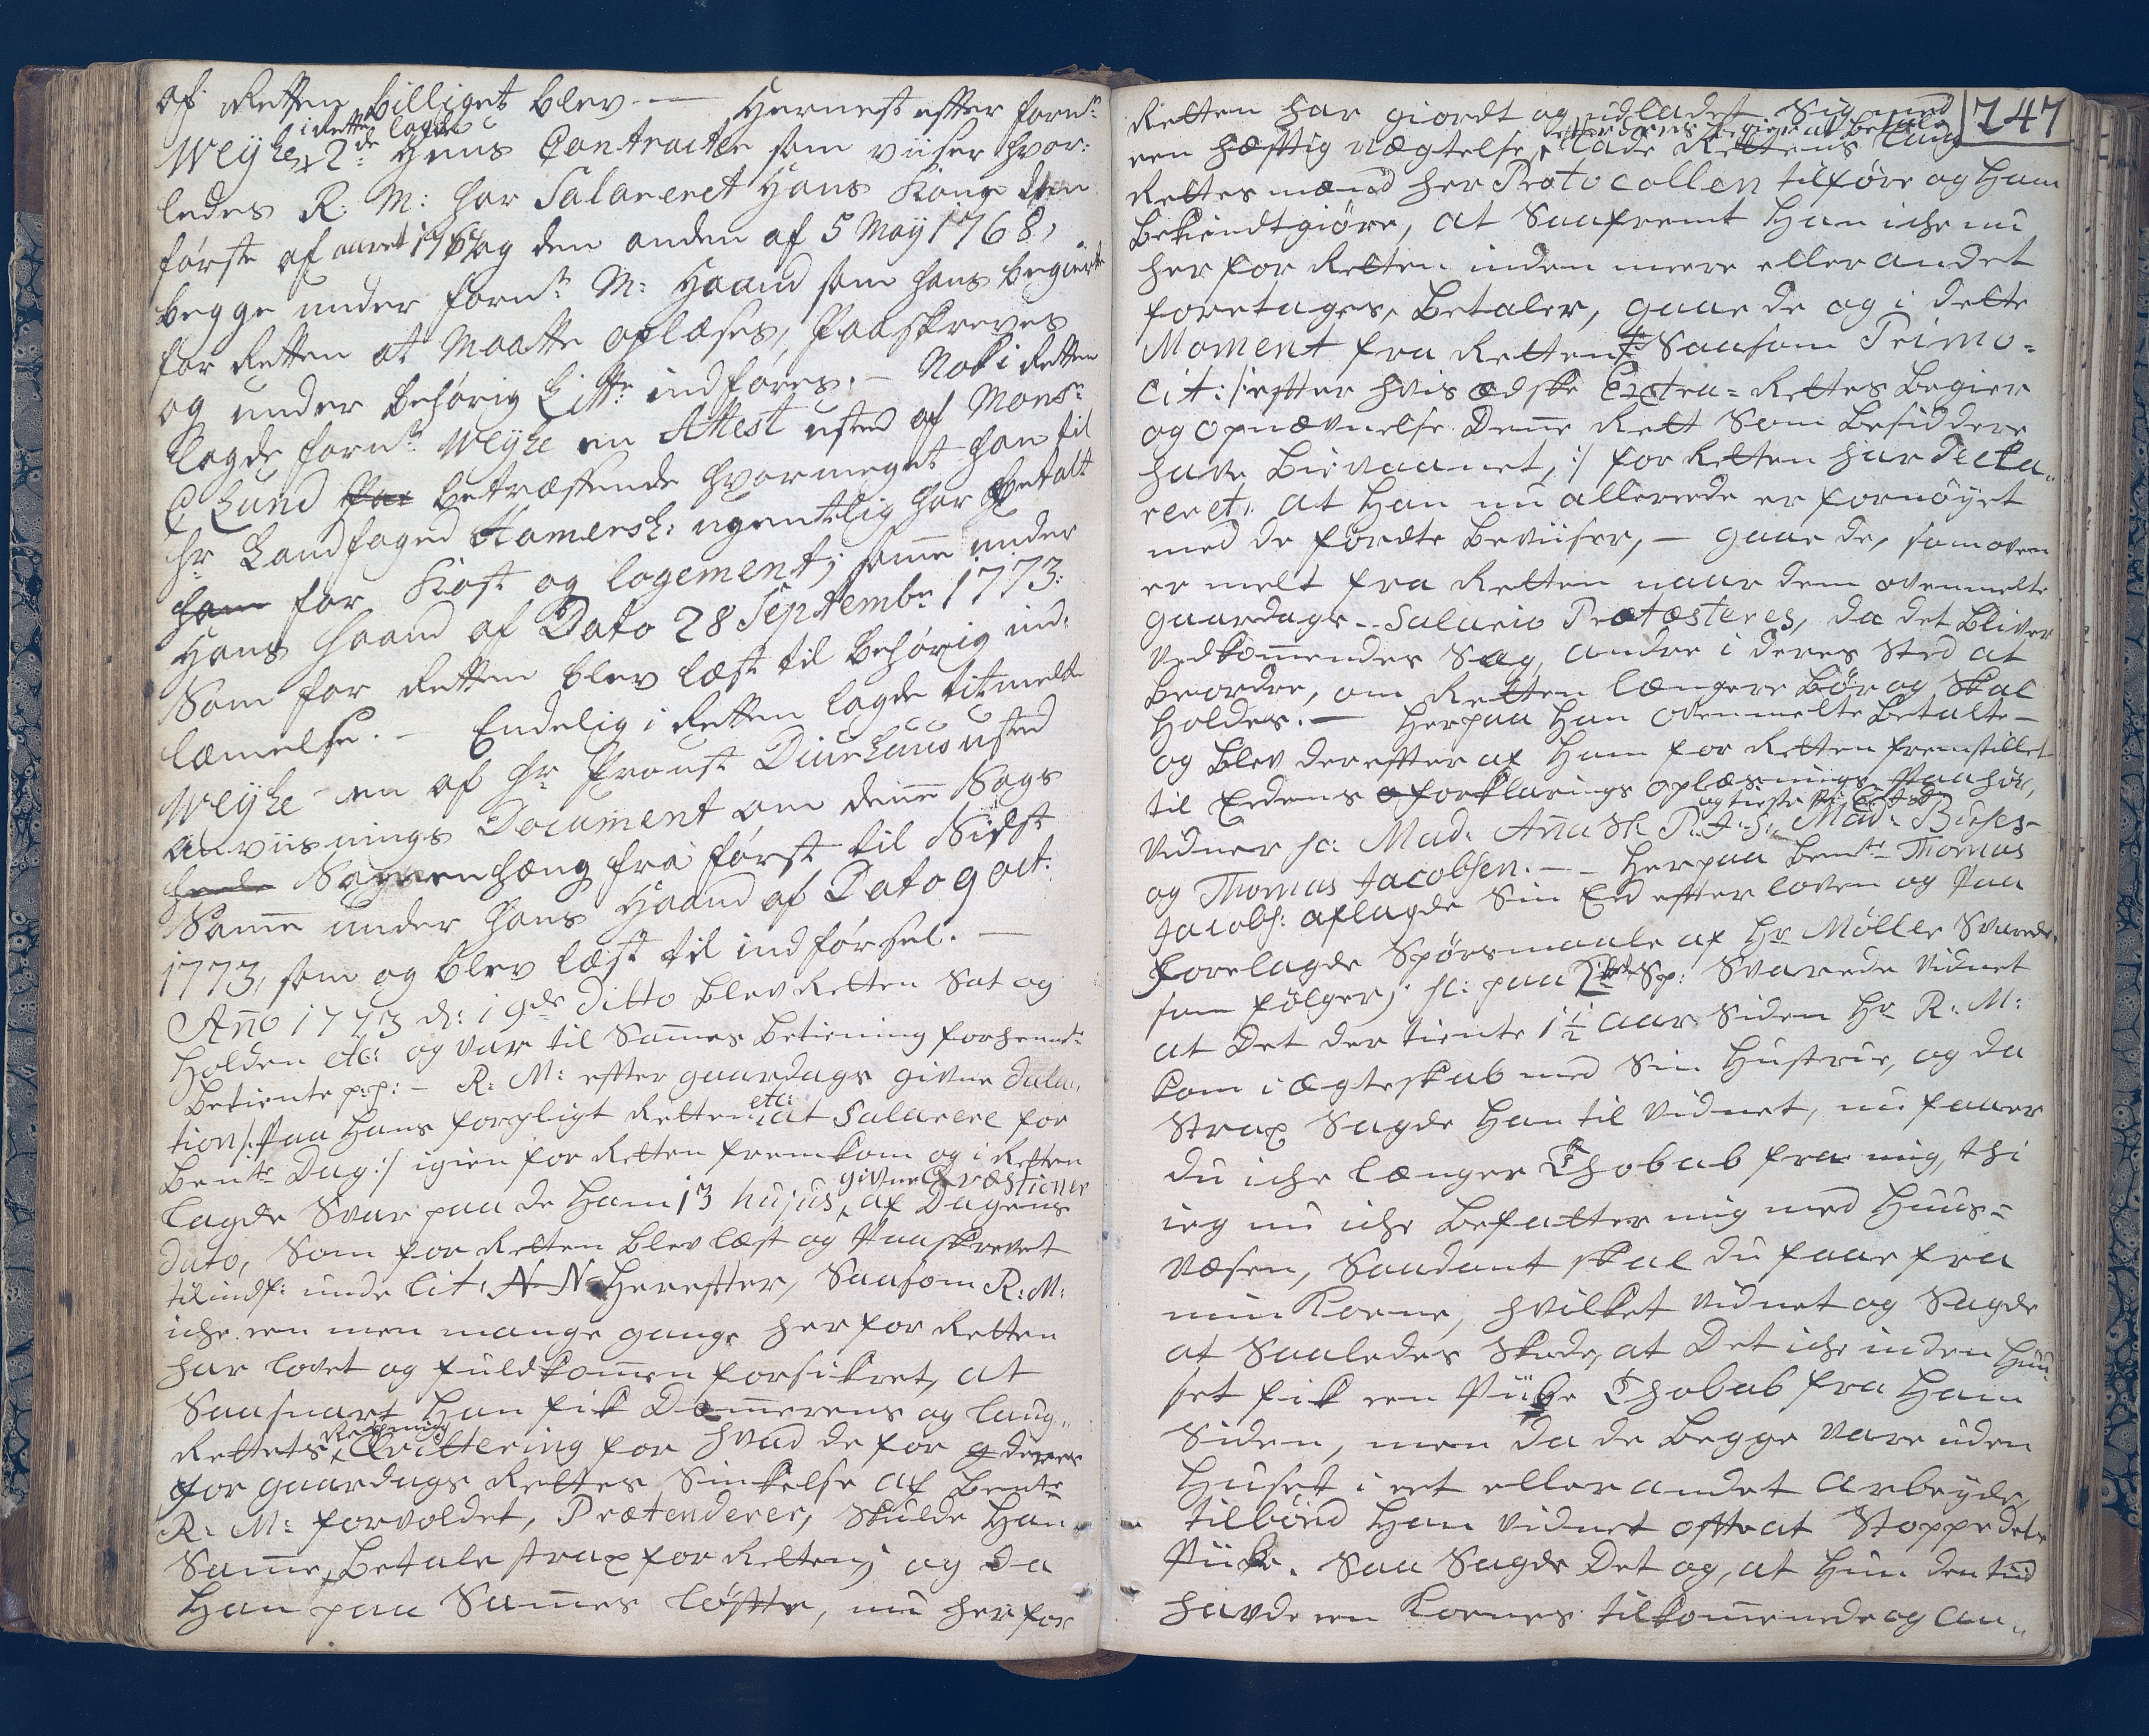 af Retten billiget blev. — Hernest efter fornte
Weyhe i Rette lagde 2de Hans Contracter som viiser hvor-
ledes R: M: har Salareret Hans Kone den
første af aaret 1767 og den anden af 5 May 1768,
begge under fornte M: Haand som hans begierte
for Retten at maatte oplæses, Paaskreves
og under behørig Littr indføres. — Nok i Retten
lagde fornte Weyhe en Attest usted af Monsr
C Lund betræffende hvormeget han til
Hr Landfoged Hamersh: ugentlig har betalt
ham for Kost og logement; samme under
Hans Haand af Dato 28 Septembr 1773:
Som for Retten blev læst til behørig ind-
læmelse. — Endelig i Retten lagde titmelte
Weyhe en af Hr Proust Diurhuus usted
anviisnings Document om denne Sags
Sammenhæng fra først til Sidst
Samme under Hans Haand af Dato 9 oct:
1773, som og blev læst til indførsel. —
Anno 1773 d: 19de ditto blev Retten Sat og
Holden etc: og var til Sammes Betiening forhennte
Betiente p: p: — R: M: efter gaardags givne Dila-
tion /: Paa Hans forpligt Retten etc: at Salarere for
Bente Dag :/ igien for Retten fremkom og i Retten
lagde Svar paa de Ham 13 hujus givne Qvæstioner af Dagens
Dato, Som for Retten blev læst og Paaskrevet
til indf: unde Lit: N N Herefter, Saasom R: M:
iche een men mange gange her for Retten
har lovet og fuldkommen forsikret, at
Saasnart Han fik Dommerens og Laug-
Rettets Regning Qvittering for hvad de for deres
for gaardags Rettes Sinkelse af Bente
R: M: forvoldet, Prætenderer, Skulde Han
Samme Betale strax for Retten; og da
Han paa Sammes løfte, nu her for
747
Retten har giordt og udladet Sig med
een hæftig nægtelse, efter deres begier at betale lade Rettens Laug
Rettes mænd her Protocollen tilføre og Ham
Bekiendtgiøre, at Saafremt Han iche nu
her for Retten inden meere eller andet
foretages, Betaler, gaar de og i dette
Moment fra Retten Saasom Primo-
Cit: /: efter hvis ædske Extra-Rettes Begier
og opnævnelse Denne Rett Som Besiddere
have Bievaanet, :/ for Retten har Decla-
reret, at Han nu allerede er fornøyet
med de førdte Beviiser, — gaar de, som oven
er melt fra Retten naar dem ovenmelte
gaardags Salario Protæsteres, da det Bliver
Vedkommendes Sag, andre i deres Sted at
Beordre, om Retten længere Bør og Skal
Holdes. — Herpaa Han ovenmelte Betalte —
og Blev derefter af Ham for Retten fremstillet
til Eedens forklarings oplæsnings Paahør,
Vidner sc: Mad: Anna Sl. P: J: S: Mad: Buhes-
og Thomas Jacobsen. — Herpaa Bente Thomas
Jacobs: aflagde Sin Eed efter loven og Paa
forelagde Spørsmaale af Hr Møller Svarede
som følger; sc: paa Sp: Svarede Vidnet
at Det der tiente 1 1/2 aar Siden Hr R: M:
kom i ægteskab med Sin Hustrue, og da
Strax Sagde Han til Vidnet, nu faaer
du iche længer Thobab fra mig, thi
ieg nu iche Befatter mig med Huus-
Væsen, Saadant skal du faae fra
min Koene, hvilket Vidnet og Sagde
at Saaledes Skede, at Det iche inden Huu-
set fik een Piibe Thobab fra Ham
Siden, men da de Begge vare uden
Huset i eet eller andet Arbeyde,
tilbød Han Vidnet ofte at Stoppe dets
Piibe. Saa Sagde Det og, at Hun den tiid
havde een Koenes tilkommende og an-